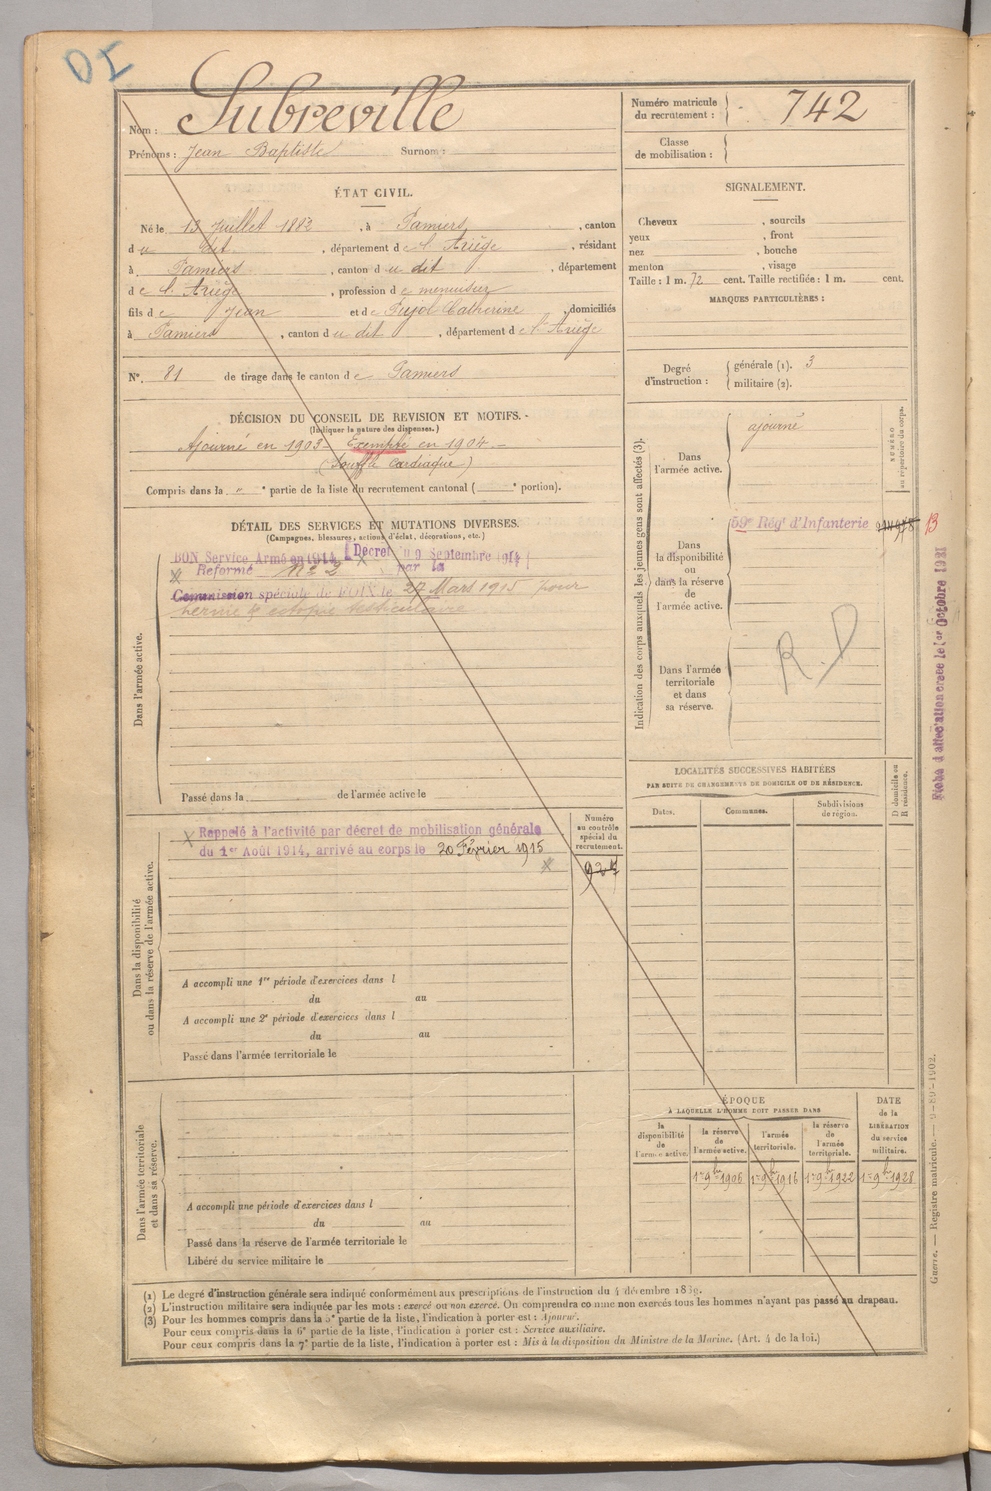 DI
Nom : Subreville
Prénoms : Jean Baptiste Surnom :
Numéro matricule du recrutement : 742
Classe de mobilisation :
ÉTAT CIVIL.
Né le 13 Juillet 1883, à Pamiers, canton
du dit, département de l'Ariège, résidant
à Pamiers, canton du dit, département
de l'Ariège, profession de menuisier
fils de Jean et de Pujol Catherine, domiciliés
à Pamiers, canton du dit, département de l'Ariège
N°. 81 de tirage dans le canton de Pamiers
SIGNALEMENT.
Cheveux , sourcils
yeux , front
nez , bouche
menton , visage
Taille : 1 m. 72 cent. Taille rectifiée : 1 m. cent.
MARQUES PARTICULIÈRES :
Degré d'instruction : générale (1). 3
militaire (2).
DÉCISION DU CONSEIL DE REVISION ET MOTIFS.
(Indiquer la nature des dispenses.)
Ajourné en 1903 - Exempté en 1904 -
(Souffle Cardiaque)
Compris dans la " e partie de la liste du recrutement cantonal ( e portion).
DÉTAIL DES SERVICES ET MUTATIONS DIVERSES.
(Campagnes, blessures, actions d'éclat, décorations, etc.)
Dans l'armée active.
BON Service Armé en 1914 (Décret du 9 Septembre 1914)
Réformé N° 2 par la
Commission spéciale de FOIX le 27 Mars 1915 pour
hernie & ectopie testiculaire
Passé dans la de l'armée active le
Indication des corps auxquels les jeunes gens sont affectés (3).
NUMÉRO au répertoire du corps.
Dans l'armée active.
ajourné
Dans la disponibilité ou dans la réserve de l'armée active.
59e Régt d'Infanterie
13
Dans l'armée territoriale et dans sa réserve.
R. D
LOCALITÉS SUCCESSIVES HABITÉES
PAR SUITE DE CHANGEMENTS DE DOMICILE OU DE RÉSIDENCE.
Dates.
Communes.
Subdivisions de région.
D domicile ou R résidence.
Dans la disponibilité ou dans la réserve de l'armée active.
Rappelé à l'activité par décret de mobilisation générale
du 1er Août 1914, arrivé au corps le 20 Février 1915
Numéro au contrôle spécial du recrutement.
A accompli une 1re période d'exercices dans l
du au
A accompli une 2e période d'exercices dans l
du au
Passé dans l'armée territoriale le
Dans l'armée territoriale et dans sa réserve.
A accompli une période d'exercices dans l
du au
Passé dans la réserve de l'armée territoriale le
Libéré du service militaire le
ÉPOQUE
À LAQUELLE L'HOMME DOIT PASSER DANS
la disponibilité de l'armée active.
la réserve de l'armée active.
l'armée territoriale.
la réserve de l'armée territoriale.
DATE de la LIBÉRATION du service militaire.
1er 9bre 1906
1er 9bre 1916
1er 9bre 1922
1er 9bre 1928
(1) Le degré d'instruction générale sera indiqué conformément aux prescriptions de l'instruction du 4 décembre 1889.
(2) L'instruction militaire sera indiquée par les mots : exercé ou non exercé. On comprendra comme non exercés tous les hommes n'ayant pas passé au drapeau.
(3) Pour les hommes compris dans la 5e partie de la liste, l'indication à porter est : Ajourné.
Pour ceux compris dans la 6e partie de la liste, l'indication à porter est : Service auxiliaire.
Pour ceux compris dans la 7e partie de la liste, l'indication à porter est : Mis à la disposition du Ministre de la Marine. (Art. 4 de la loi.)
Guerre. — Registre matricule. —